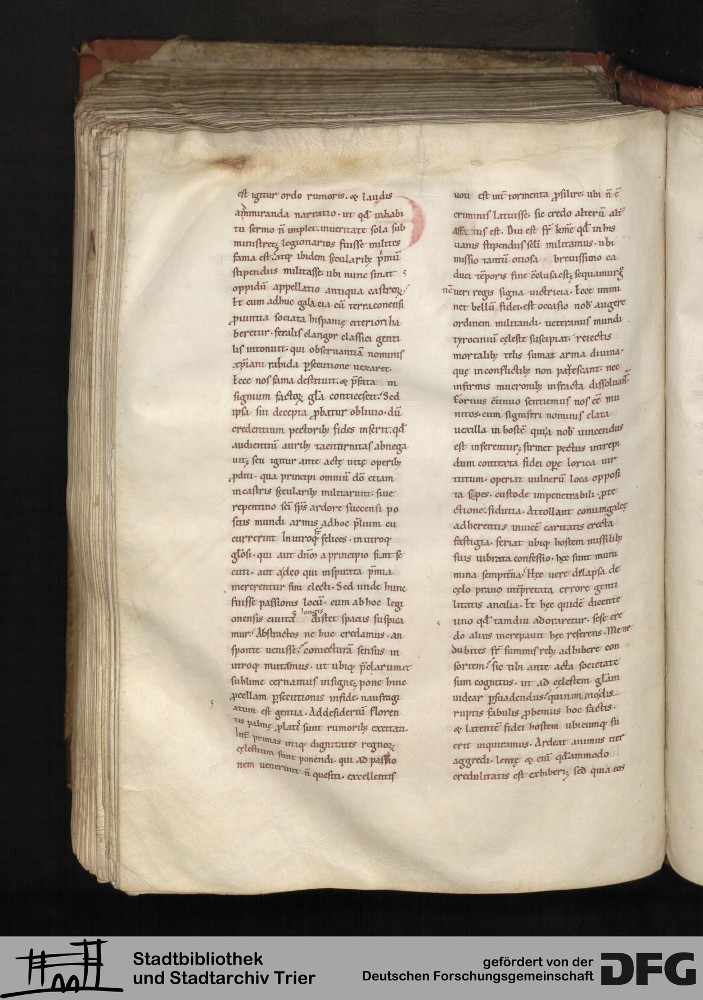 est igitur ordo rumoris. & laudis
ammiranda narratio. ut qđ inhabi
tu sermo n̄ implet. inueritate sola sub
ministret. legionarios fuisse milites
fama est. atq; ibidem secularib; p̄miū
stipendiis militasse ubi nunc
oppidū appellatio antiqua castroꝝ.
Et cum adhuc galaecia cū terraconensi
puintia sociata hispanie citerior ha
beretur. feralis clangor classici genti
lis intonuit. qui obseruantiā nominis
xp̄iani rabida p̄secutione uexaret.
Ecce nos fama destituit. & p̄fata in
signium factoꝝ gl̄a conticescit. Sed
ipsa sui decepta p̄batur obliuio. dū
credentium pectorib; fides inserit. qđ
audientiū aurib; taciturnitas abnega
uit. seu igitur ante actę uitę operib;
pditi. qua principi omniū dō etiam
incastris secularib; militarunt. siue
repentino sc̄i sp̄s ardore succensi po
sitis mundi armis adhoc p̄lium cu
currerunt. Inutroq; felices. inutroq;
gl̄osi. qui aut dn̄o a principio sunt se
cuti. aut adeo qui inspirata p̄mia
mererentur sint electi. Sed unde hunc
fuisse passionis locū. cum abhoc legi
onensis ciuitas longis distet spaciis suspica
mur. Abstractos ne huc credamus. an
sponte uenisse. coniecturā sensus in
utroq; mittamus. ut ubiq; p̄clarum et
sublime cernamus insigne. pone hinc
pcellam p̄secutionis infide. naufragi
atum est gentia. Addesideriū floren
tis palmę. plati sunt rumorib; excitati.
Int̄ primas utiq; dignitates regnoꝝ
celestium sunt ponendi. qui ad passio
nem uenerunt n̄ quesiti. excellentis
uoti est int̄ tormenta p̄silire. ubi n̄ ē
criminis latuisse. sic credo alterū alt̄
affatus est. Diu est fr̄ kme qđ in his
uanis stipendiis seli militamus. ubi
missio tantū ociosa breuissimo ca
duci tēporis fine cclusa est. sequamur
nc̄ ueri regis signa uictricia. Ecce immi
net bellū fidei. est occasio nob̄ augere
ordinem militandi. ueteranus mundi
tyrociniū celeste suscipiat. reiectis
mortalib; telis sumat arma diuina.
quę inconflictib; non pauescant. nec
infirmis mucronib; infracta dissoluant.
Fortius etinuo sentiemus nos eē mu
nitos. cum signiferi nominis elata
uexilla in hostē quasi nob̄ uincendus
est inferentur. firmet pectus intrepi
dum contexta fidei ope lorica uir
tutum. operiat uulnerū loca opposi
ta sępes. custode impenetrabili. pte
ctione. fiducia. Attollant coniumgalęę
adherentis inuicē caritatis erecta
fastigia. feriat ubiq; hostem missilib;
suis uibrata confessio. hęc sunt muni
mina sempit̄na. Hęc uere delapsa de
celo prauo int̄pretata errore genti
litatis ancilia. Et hęc quidē dicente
uno qđ tamdiu adoraretur. sese cre
do alius increpauit hęc referens. Me ne
dubites fr̄ summis reb; adhibere con
sortem. sic tibi ante acta societate
sum cognitus. ut ad celestem gl̄am
uidear p̄suadendus. quinim modis
ruptis fabulis p̄bemus hoc factis.
& latentē fidei hostem ubicumq; fu
erit inquiramus. Ardeat animus iter
aggredi. lente & enī qđammodo
credulitatis est exhiberi. sed quia eos
Stadtbibliothek
und Stadtarchiv Trier
gefördert von der
Deutschen Forschungsgemeinschaft
DFG